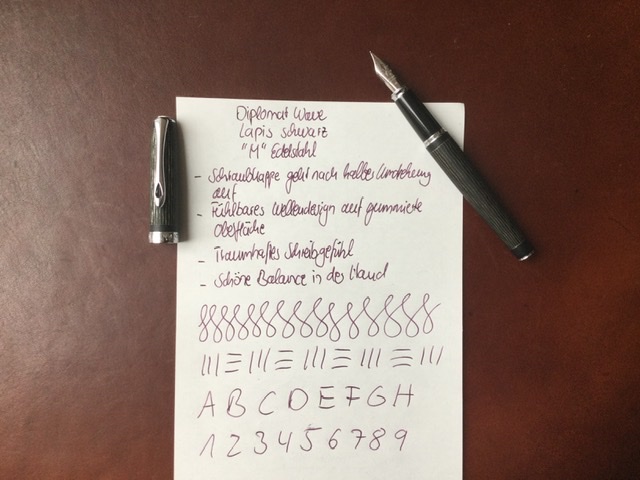 Diplomat Wave
Lapis schwarz
"M" Edelstahl
- Schraubkappe geht nach halber Umdrehung
auf
- Fühlbares Wellendesign auf gummierte
Oberfläche
- Traumhaftes Schreibgefühl
- Schöne Balance in der Hand
III ☰ III ☰ III ☰ III ☰ III
A B C D E F G H
1 2 3 4 5 6 7 8 9